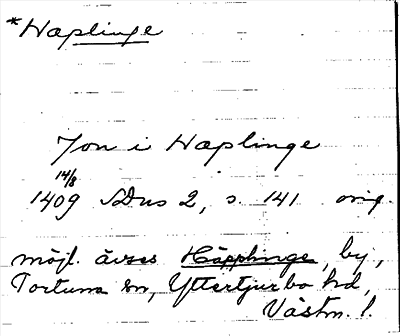 *Haplinge
Jon i Haplinge
14/8
1409 SDns 2, s. 141 orig.
möjl. avses Häpplinge, by,
Tortuna sn, Yttertjurbo hd,
Västm. l.